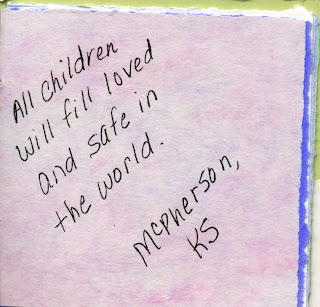 All children
will fill loved
and safe in
the world.
McPherson,
KS